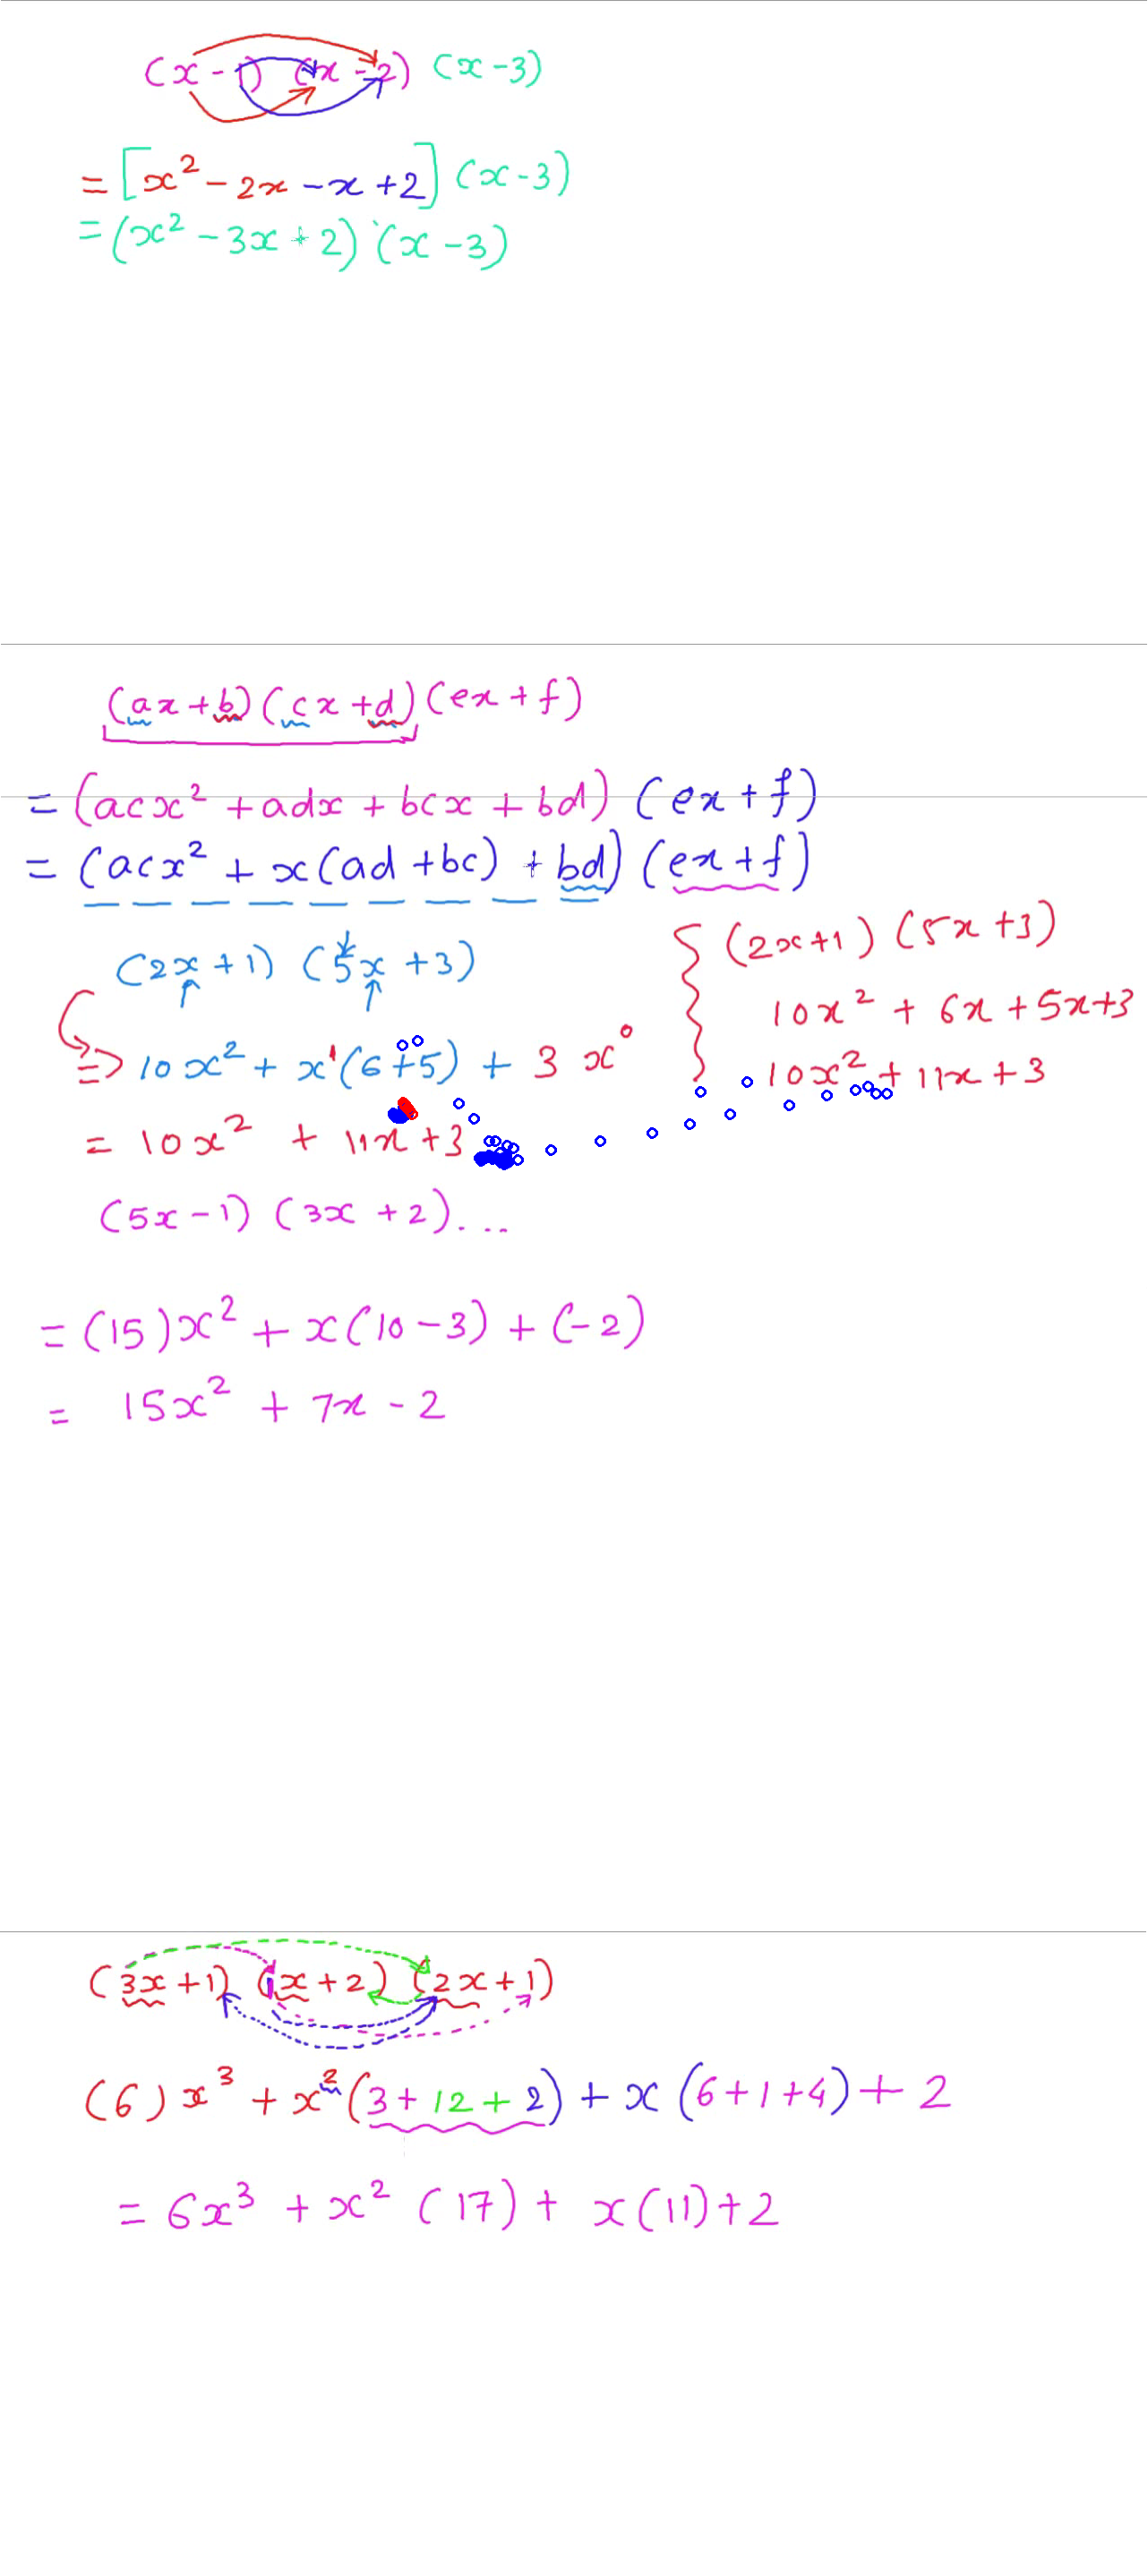 (x - 1) (x - 2) (x - 3)
= [x² - 2x - x + 2] (x - 3)
= (x² - 3x + 2) (x - 3)
(ax + b) (cx + d) (ex + f)
= (acx² + adx + bcx + bd) (ex + f)
= (acx² + x(ad + bc) + bd) (ex + f)
(2x + 1) (5x + 3)
⇒ 10x² + x¹(6 + 5) + 3x⁰
= 10x² + 11x + 3
{ (2x + 1) (5x + 3)
10x² + 6x + 5x + 3
10x² + 11x + 3
(5x - 1) (3x + 2) ...
= (15)x² + x(10 - 3) + (-2)
= 15x² + 7x - 2
(3x + 1) (x + 2) (2x + 1)
(6)x³ + x²(3 + 12 + 2) + x(6 + 1 + 4) + 2
= 6x³ + x² (17) + x(11) + 2